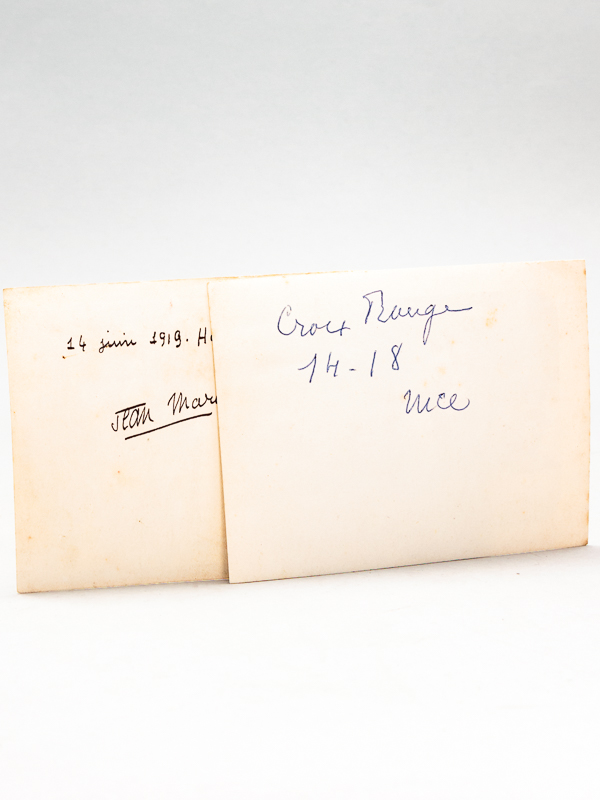 14 juin 1919. H
Jean Mar
Croix Rouge
14-18
Nice